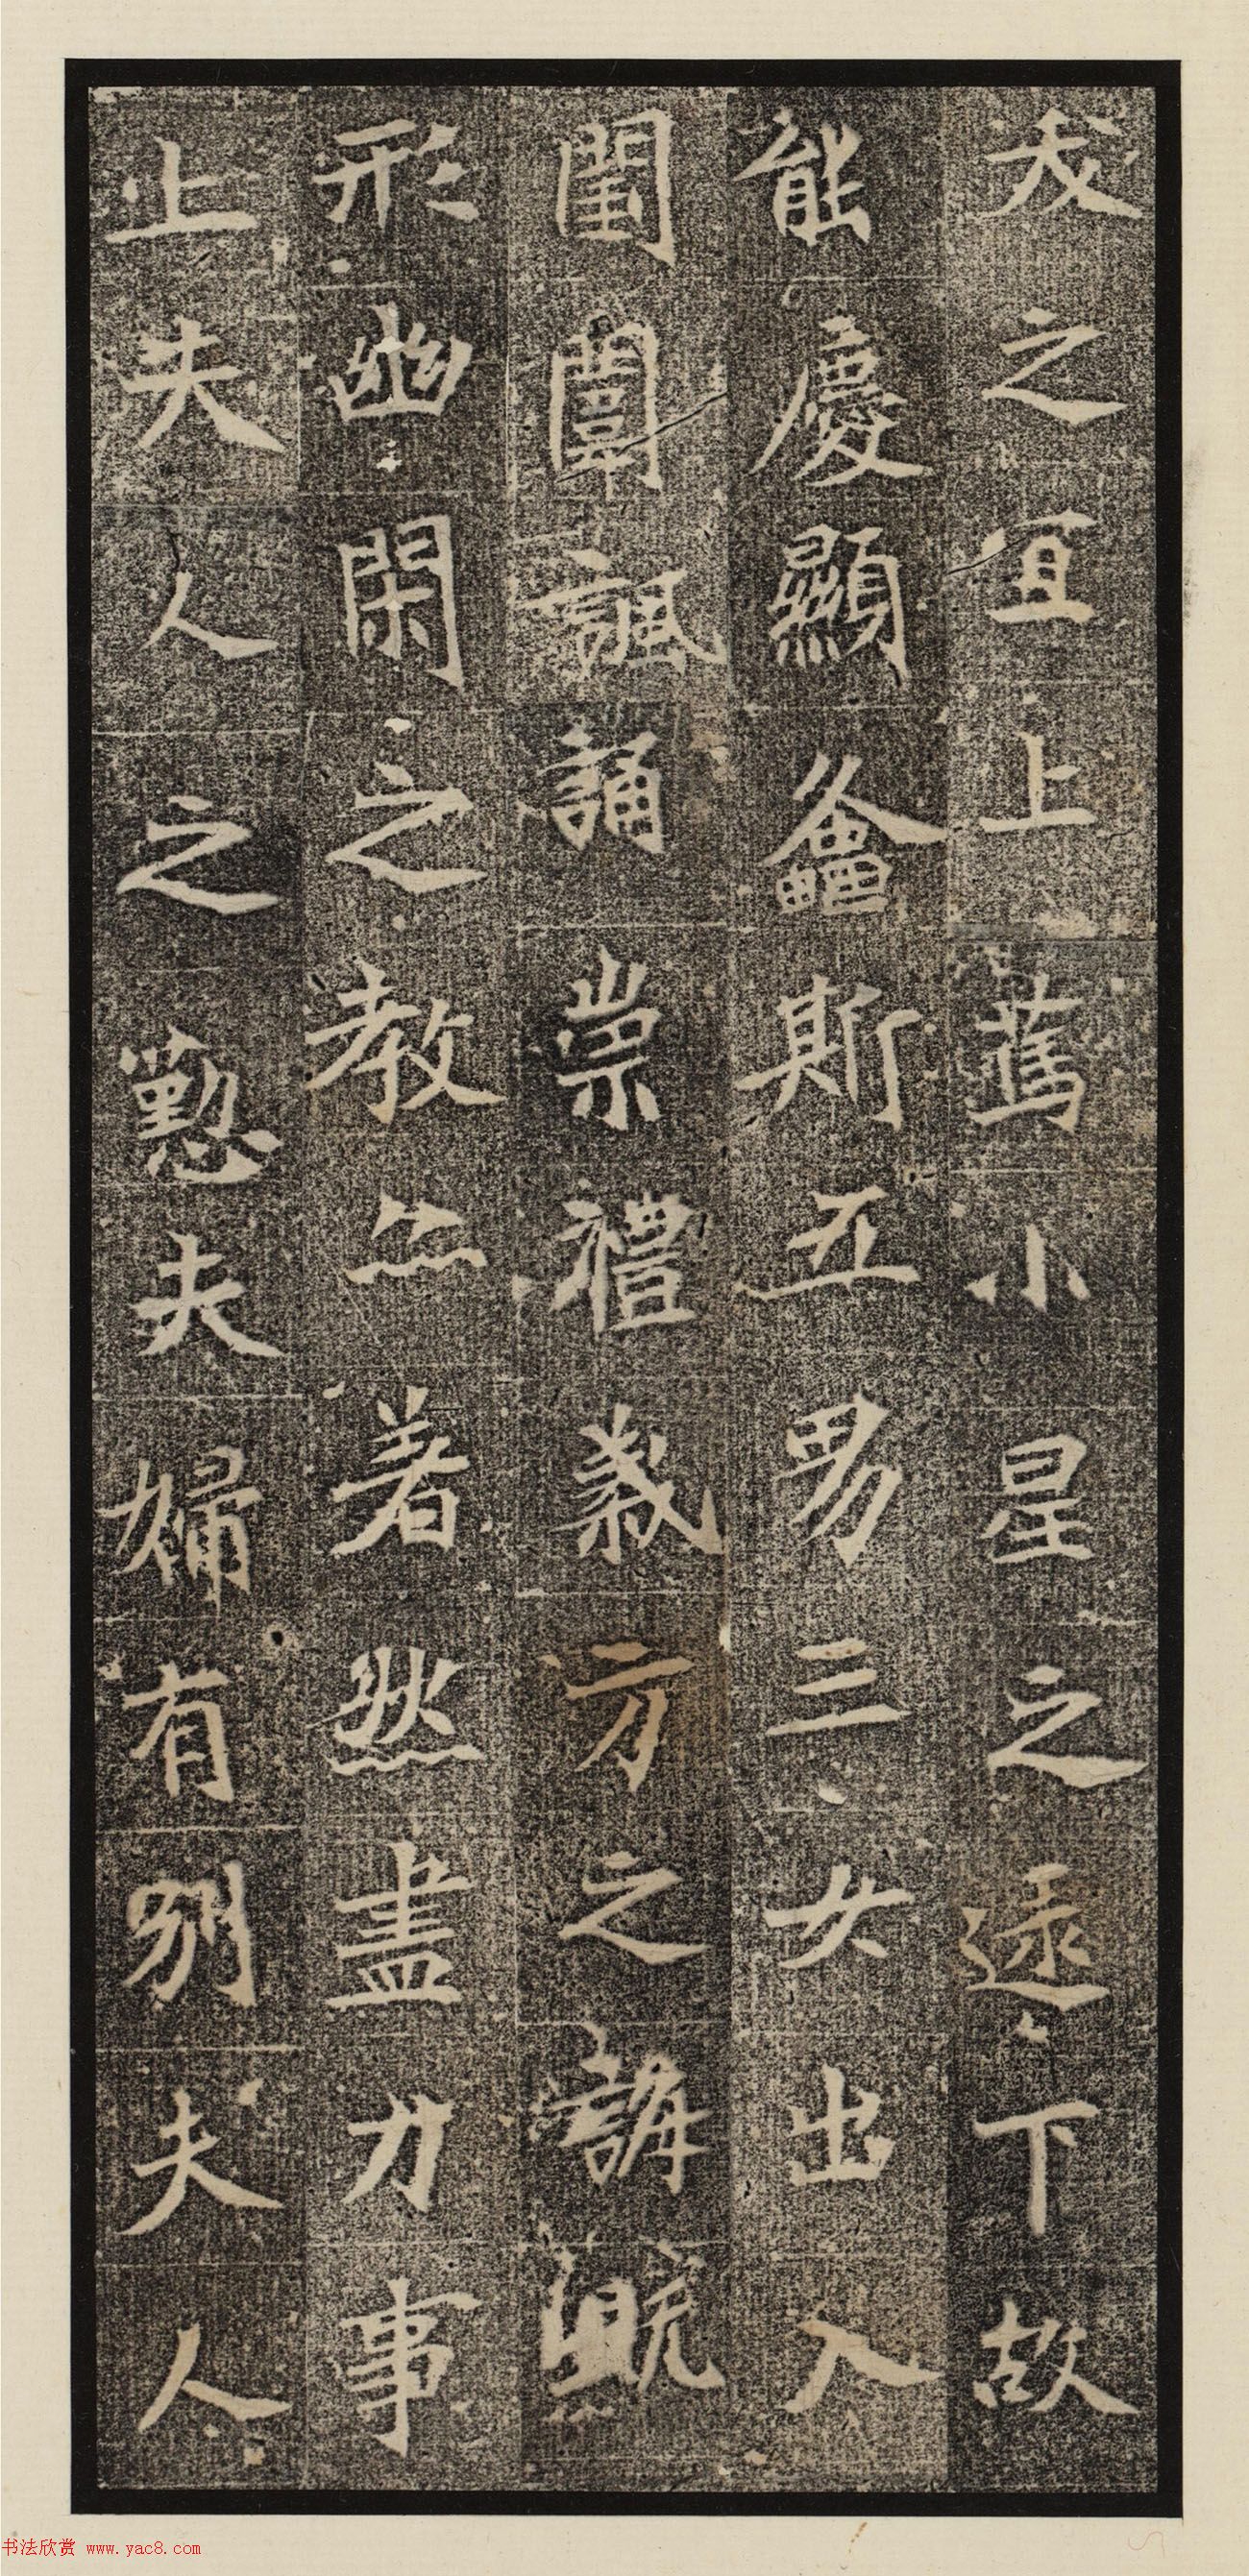 夭之宜上篤小星之逮下故
能慶顯螽斯五男三女出入
閨闈諷誦崇禮義方之誨既
形幽閑之教亦著然盡力事
上夫人之懃夫婦有別夫人
书法欣赏 www.yac8.com